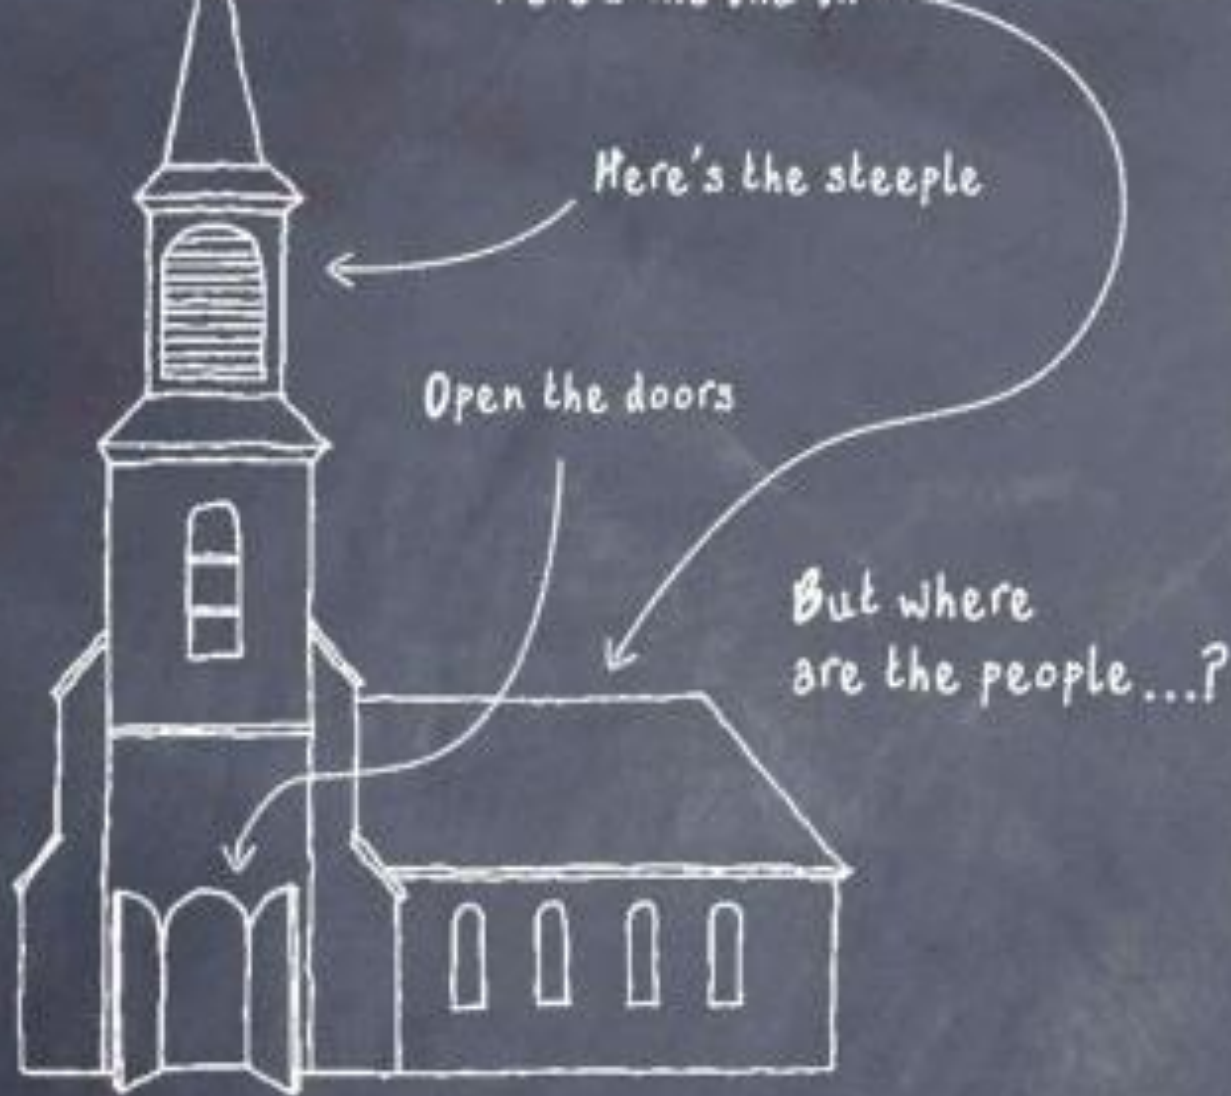 Here's the steeple
Open the doors
But where
are the people...?